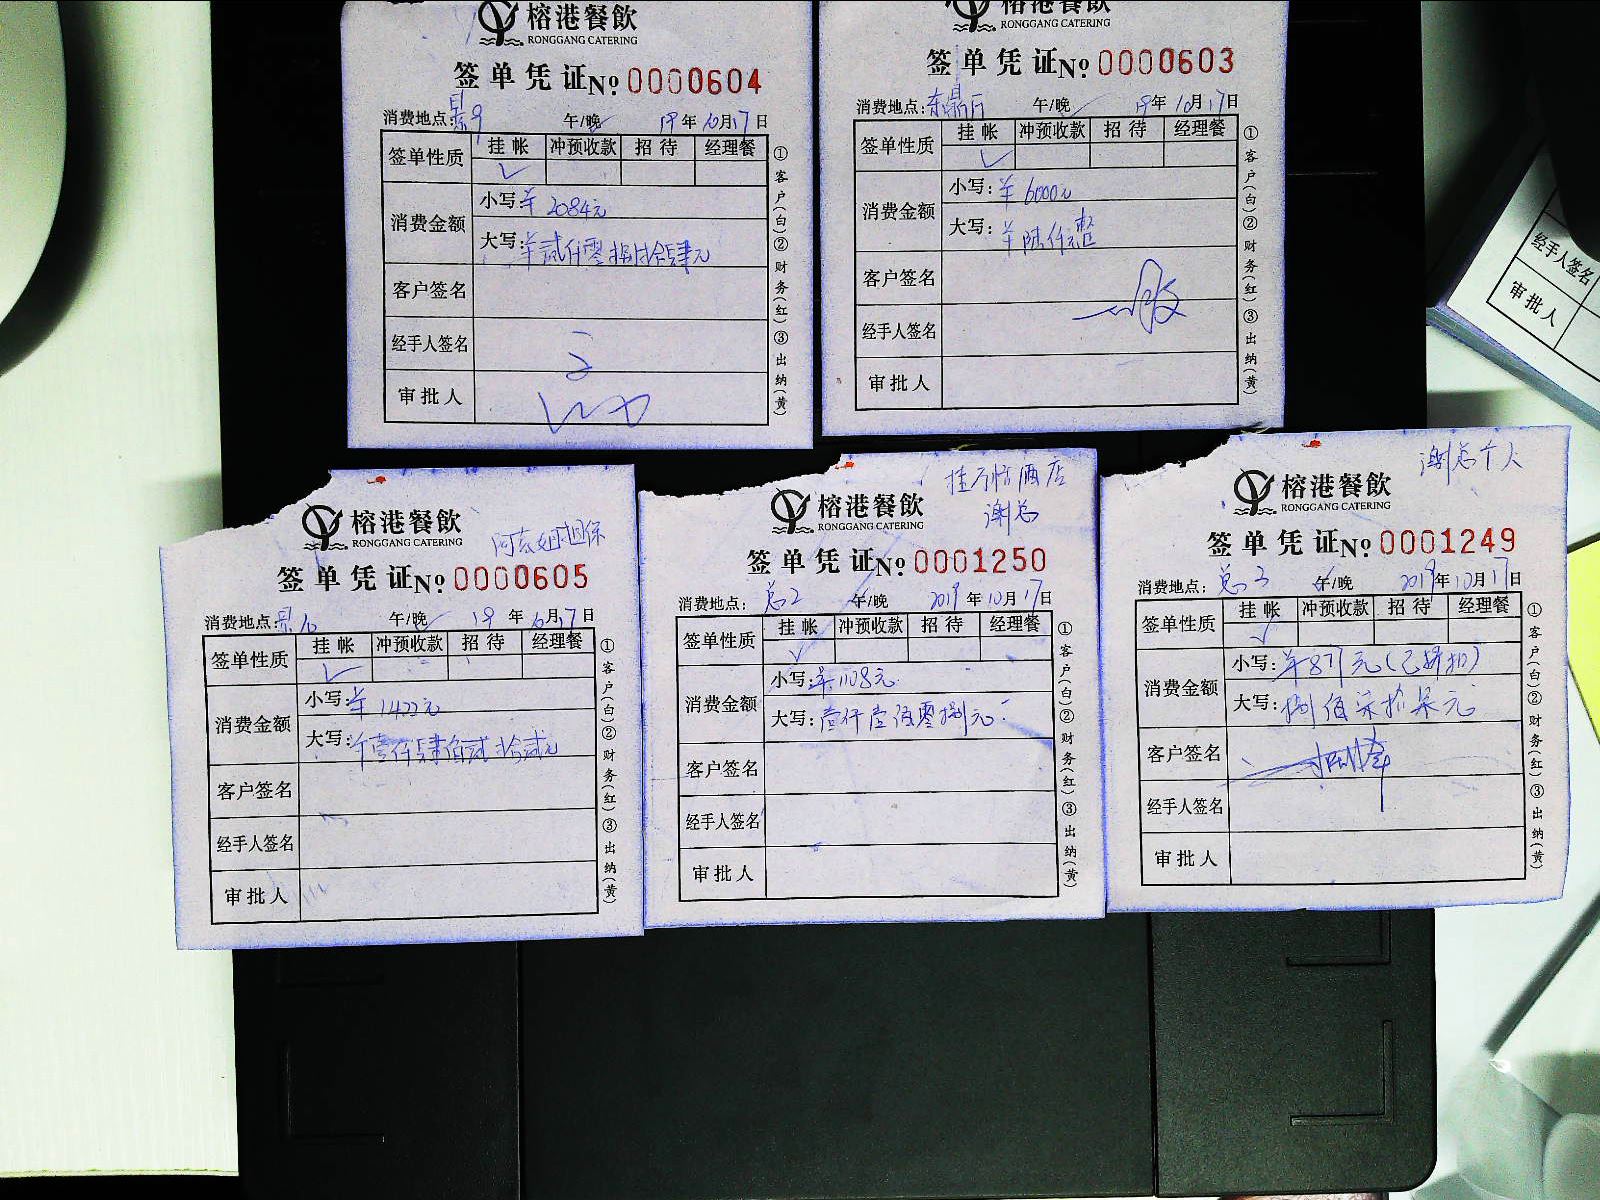 榕港餐飲
RONGGANG CATERING
签单凭证 No 0000604
消费地点: 鼎9 午/晚 19年10月17日
签单性质 挂帐 冲预收款 招待 经理餐
消费金额 小写: ¥2084元
大写: ¥贰仟零捌拾肆元
客户签名
经手人签名
审批人
①客户(白)②财务(红)③出纳(黄)
榕港餐飲
RONGGANG CATERING
签单凭证 No 0000603
消费地点: 午/晚 19年10月17日
签单性质 挂帐 冲预收款 招待 经理餐
消费金额 小写: ¥6000元
大写: ¥陆仟元整
客户签名
经手人签名
审批人
①客户(白)②财务(红)③出纳(黄)
经手人签名
审批人
榕港餐飲
RONGGANG CATERING
担保
签单凭证 No 0000605
消费地点: 鼎10 午/晚 19年10月17日
签单性质 挂帐 冲预收款 招待 经理餐
消费金额 小写: ¥1422元
大写: ¥壹仟肆佰贰拾贰元
客户签名
经手人签名
审批人
①客户(白)②财务(红)③出纳(黄)
酒店
谢总
榕港餐飲
RONGGANG CATERING
签单凭证 No 0001250
消费地点: 总2 午/晚 2019年10月17日
签单性质 挂帐 冲预收款 招待 经理餐
消费金额 小写: ¥1108元
大写: 壹仟壹佰零捌元
客户签名
经手人签名
审批人
①客户(白)②财务(红)③出纳(黄)
谢总个人
榕港餐飲
RONGGANG CATERING
签单凭证 No 0001249
消费地点: 总3 午/晚 2019年10月17日
签单性质 挂帐 冲预收款 招待 经理餐
消费金额 小写: ¥877元(已折扣)
大写: 捌佰柒拾柒元
客户签名
经手人签名
审批人
①客户(白)②财务(红)③出纳(黄)